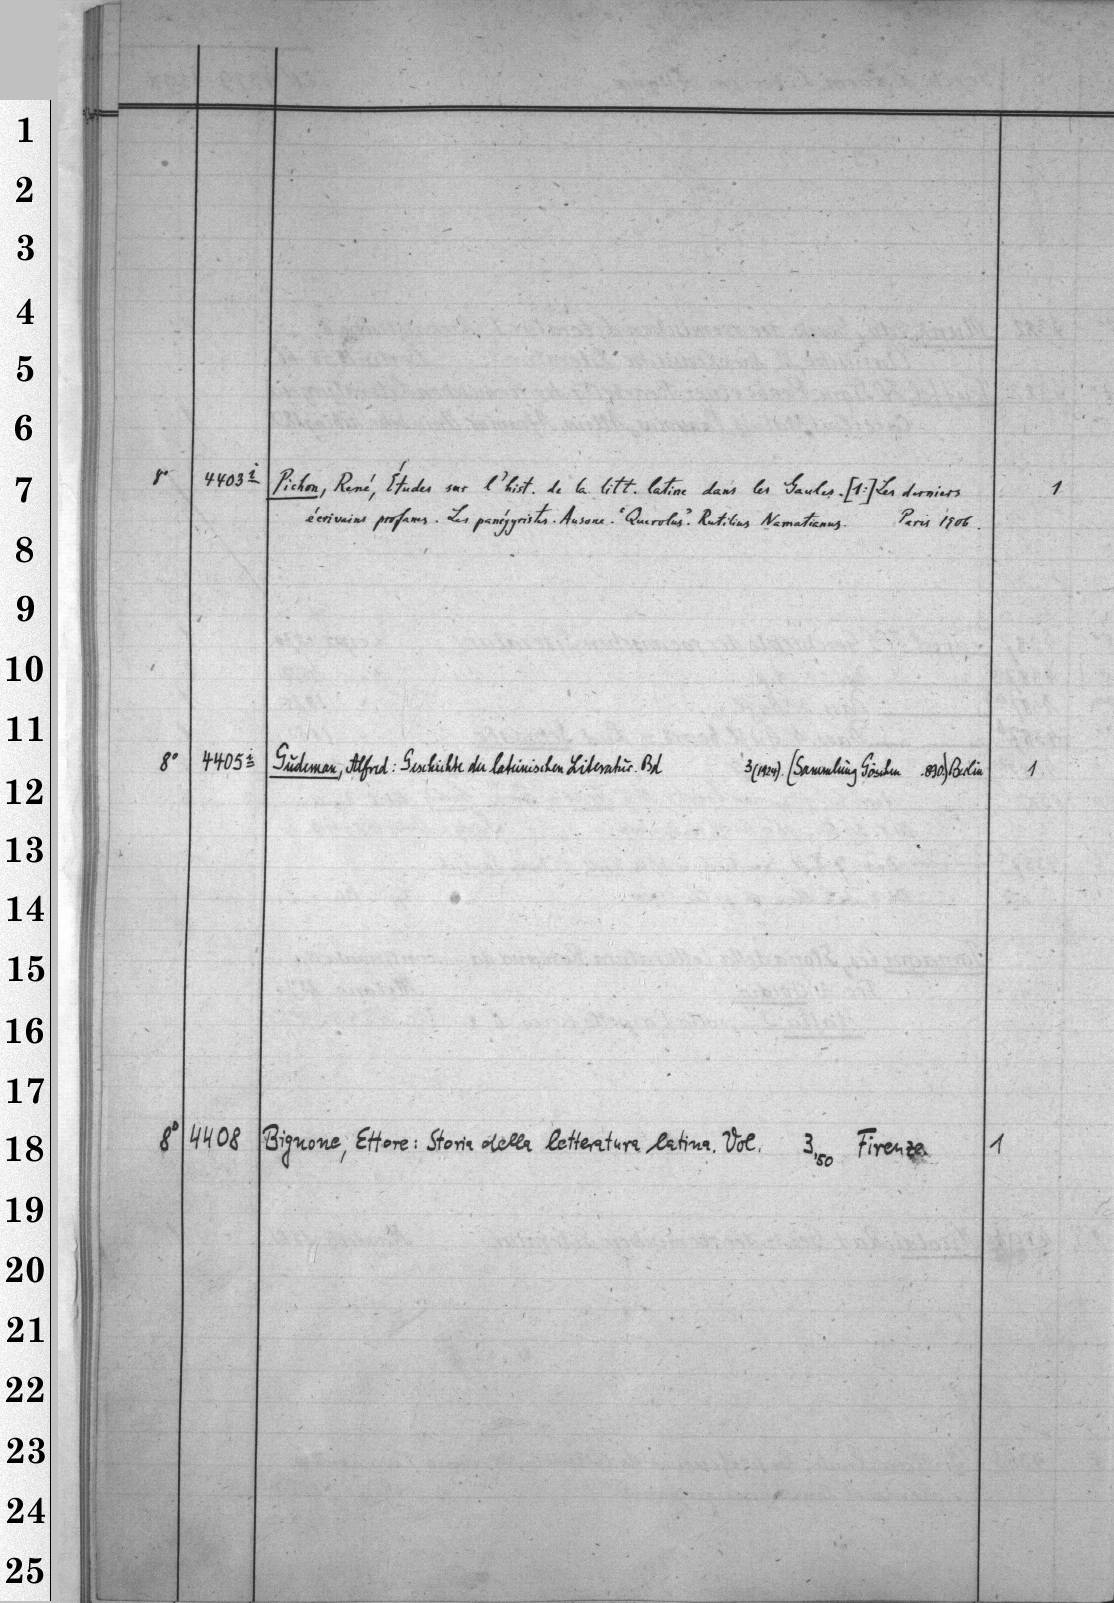 1
2
3
4
5
6
7
8
9
10
11
12
13
14
15
16
17
18
19
20
21
22
23
24
25
8° 4403 i Pichon, René, Études sur l'hist. de la litt. latine dans les Gaules. [1:] Les derniers 1
écrivains profanes. Les panégyristes. Ausone. "Querolus". Rutilius Namatianus. Paris 1906.
8° 4405 i Gudeman, Alfred: Geschichte der lateinischen Literatur. Bd 3 (1924). (Sammlung Göschen .890.) Berlin 1
8° 4408 Bignone, Ettore: Storia della letteratura latina. Vol. 3,'50 Firenze 1